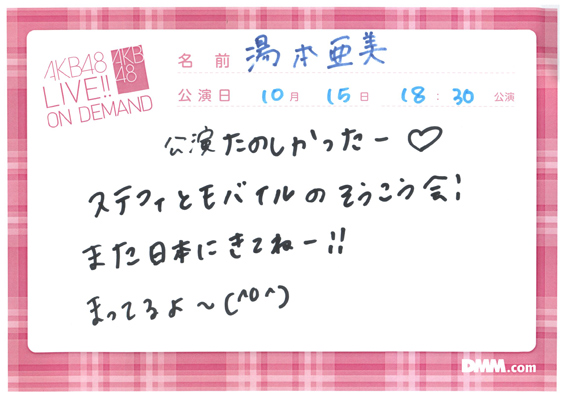 AKB48
LIVE!!
ON DEMAND
AKB
48
名前 湯本亜美
公演日 10月 15日 18:30 公演
公演たのしかったー♡
ステフィとモバイルのそうこう会!
また日本にきてねー!!
まってるよ~(^o^)
DMM.com